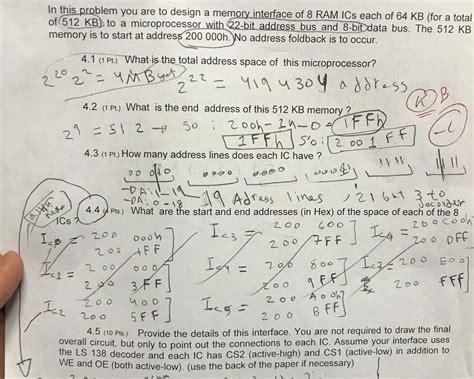 In this problem you are to design a memory interface of 8 RAM ICs each of 64 KB (for a total
of 512 KB) to a microprocessor with 22-bit address bus and 8-bit data bus. The 512 KB
memory is to start at address 200 000h. No address foldback is to occur.
4.1 (1 Pt.) What is the total address space of this microprocessor?
2^20 2^2 = 4MByet 2^22 = 4194304 address
4.2 (1 Pt.) What is the end address of this 512 KB memory ?
K B
2^9 = 512 → so : 200h - 1h - 0 = 1FFh
1FFh so: 2001FF
-1
4.3 (1 Pt.) How many address lines does each IC have ?
0000 0000 0000
DA: 0-18 19 Adress lines, 21 bit 3 to
4.4 ( Pts.) What are the start and end addresses (in Hex) of the space of each of the 8
ICs ?
Ic0 = 200 000h Ic3 = 200 600 200 C00h
200 1FF 200 7FF 200 DFF
Ic1 = 200 200 800 200 E00
200 3FF 200 9FF 200 FFF
Ic2 200 400 Ic5 = 200 A00h
200 5FF 200 BFF
4.5 (10 Pts.) Provide the details of this interface. You are not required to draw the final
overall circuit, but only to point out the connections to each IC. Assume your interface uses
the LS 138 decoder and each IC has CS2 (active-high) and CS1 (active-low) in addition to
WE and OE (both active-low). (use the back of the paper if necessary)